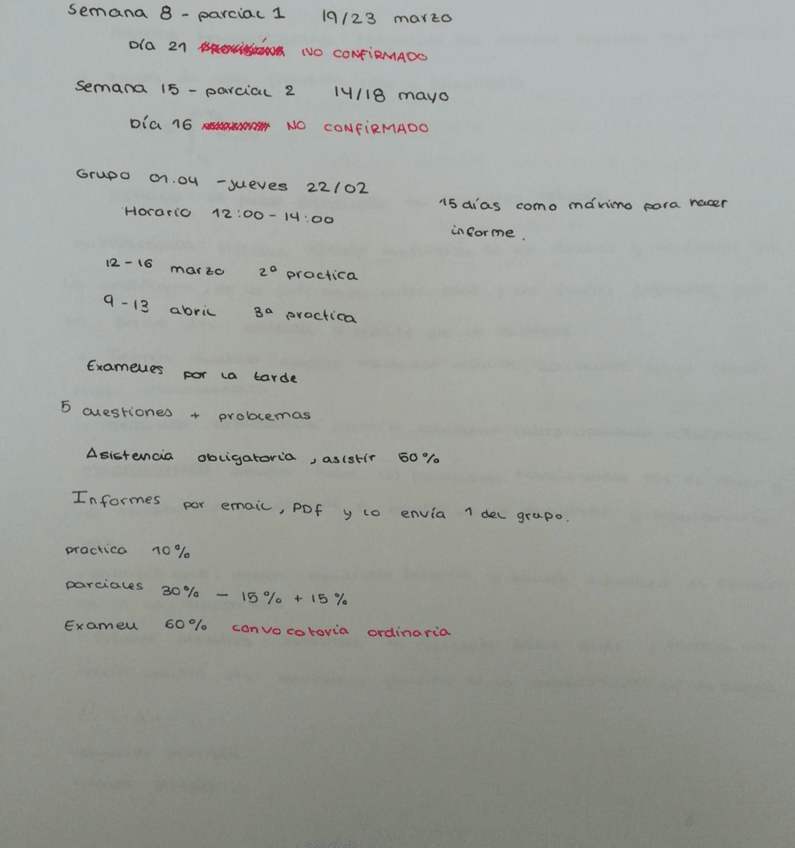 Semana 8 - parcial 1 19/23 marzo
Día 21 NO CONFIRMADO
Semana 15 - parcial 2 14/18 mayo
Día 16 NO CONFIRMADO
Grupo 01.04 - jueves 22/02
Horario 12:00 - 14:00
15 días como máximo para hacer
informe.
12 - 16 marzo 2ª practica
9 - 13 abril 3ª practica
Examenes por la tarde
5 cuestiones + problemas
Asistencia obligatoria, asistir 50%
Informes por email, PDF y lo envía 1 del grupo.
practica 10%
parciales 30% - 15% + 15%
Examen 60% convocatoria ordinaria